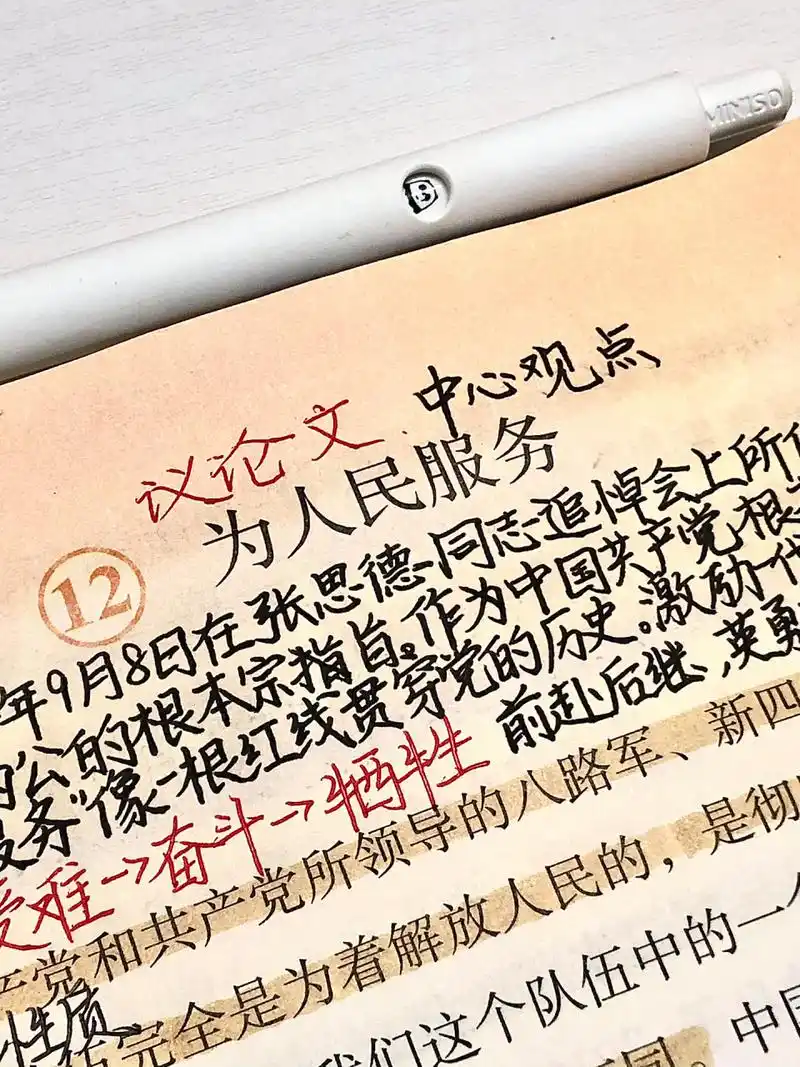 MINISO
中心观点
议论文
为人民服务
12
年9月8日在张思德同志追悼会上所
公的根本宗指旨。作为中国共产党根
服务"像一根红线贯穿党的历史。激励一代
前赴后继,英勇
受难→奋斗→牺牲
产党和共产党所领导的八路军、新四
完全是为着解放人民的,是彻
性质
我们这个队伍中的一个
同。中国